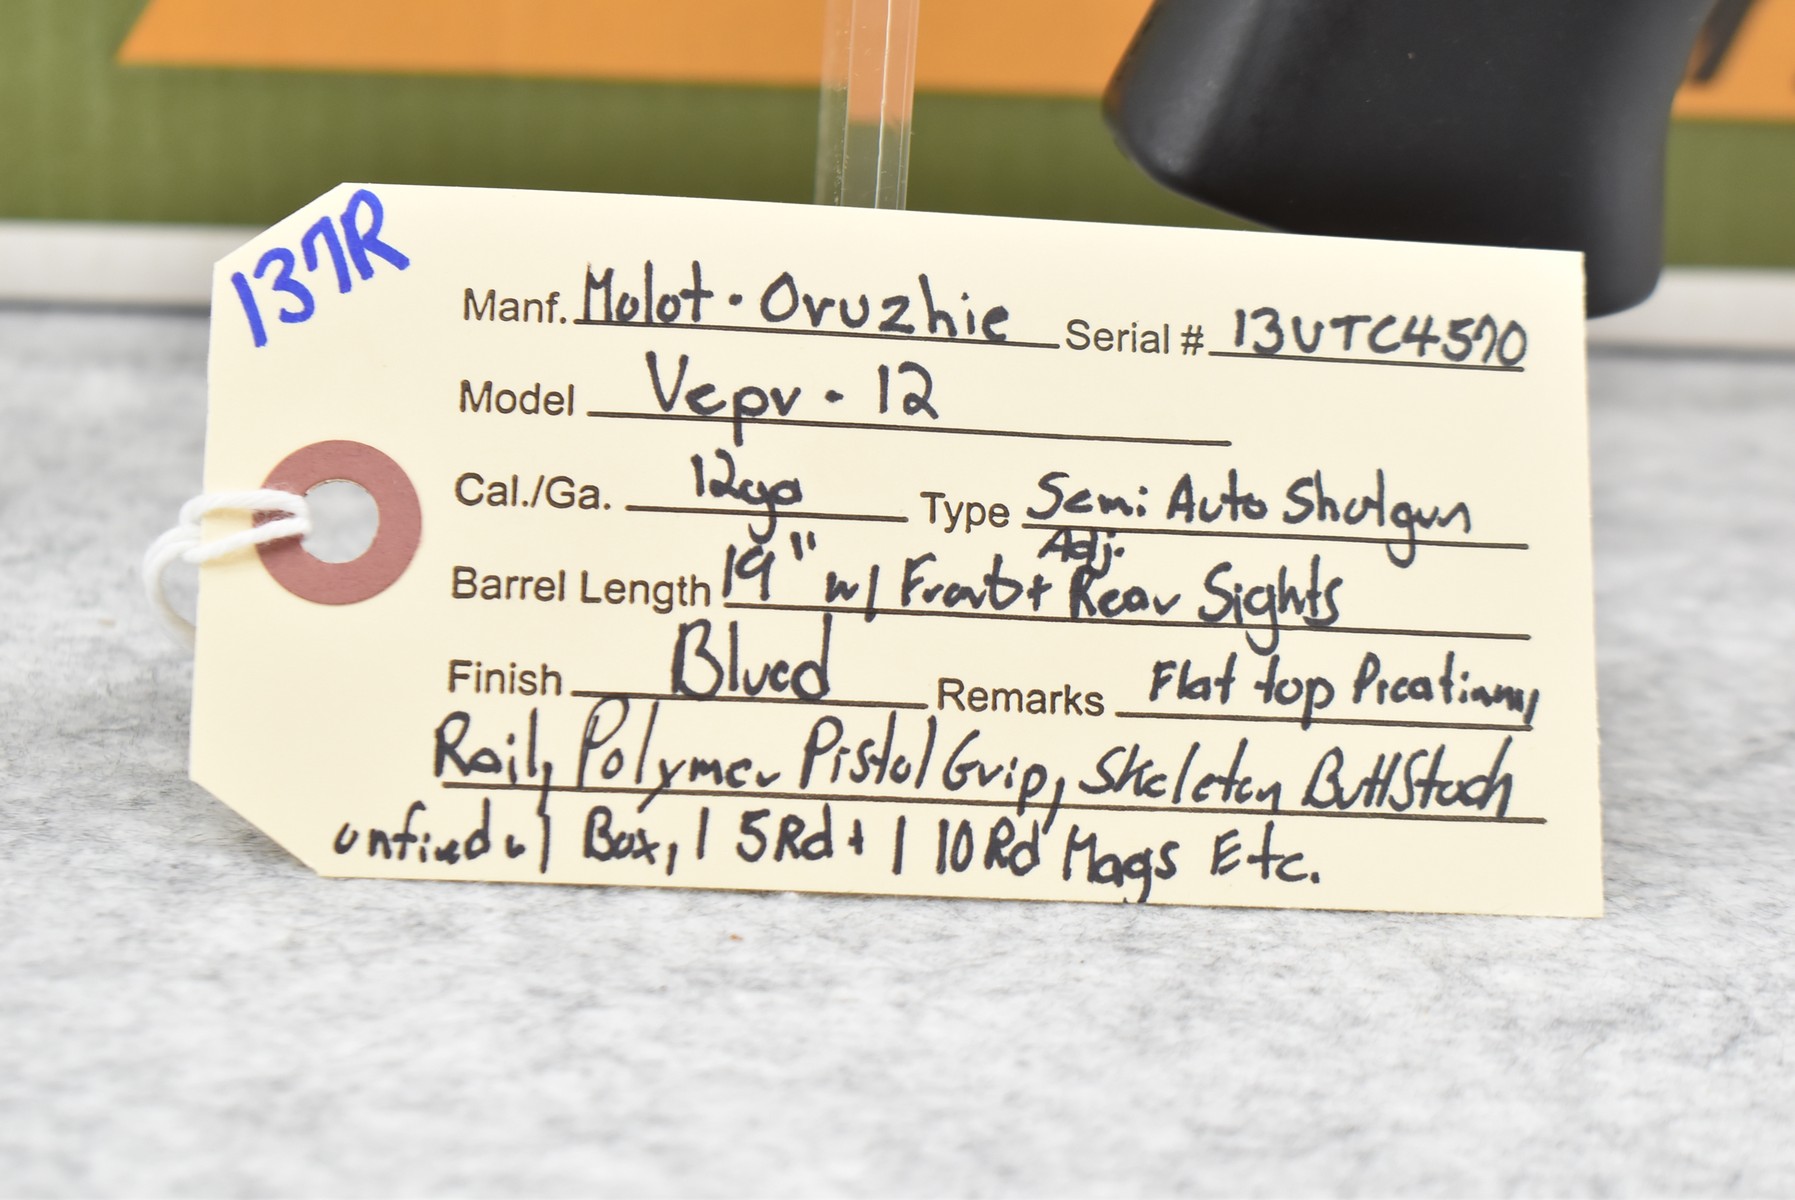 137R
Manf. Molot - Oruzhie Serial # 13VTC4570
Model Vepr - 12
Cal./Ga. 12ga Type Semi Auto Shotgun
Adj.
Barrel Length 19" w/ Front + Rear Sights
Finish Blued Remarks Flat top Picatinny
Rail, Polymer Pistol Grip, Skeleton ButtStock
unfired w/ Box, 1 5Rd + 1 10Rd Mags Etc.